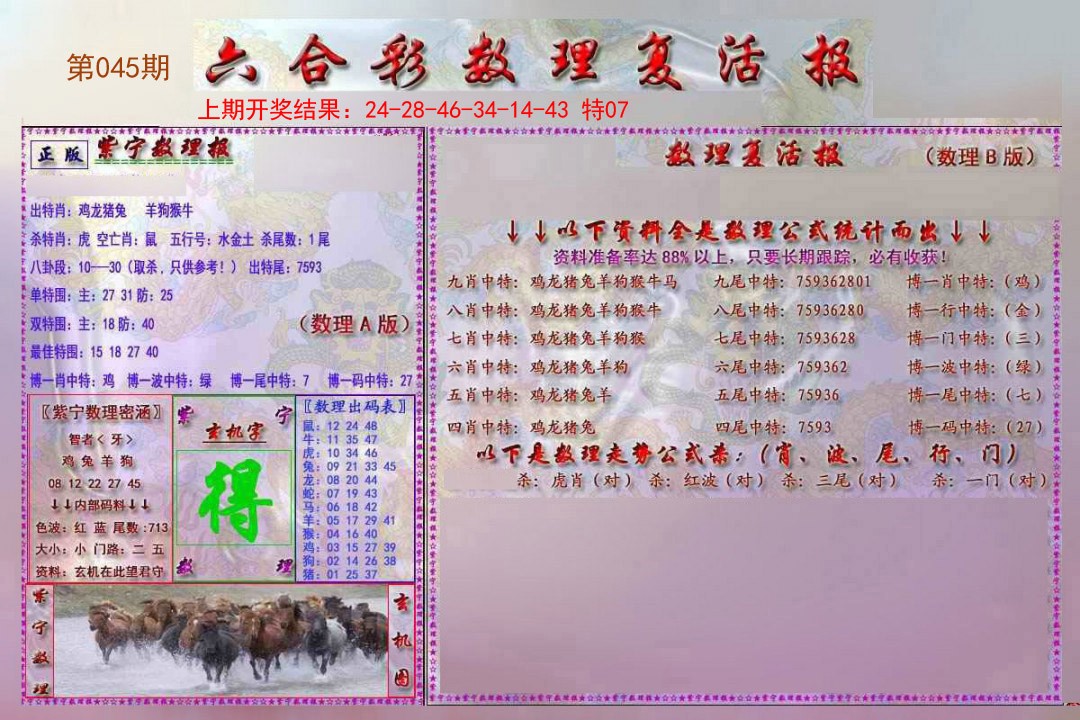 第045期
六合彩数理复活报
上期开奖结果：24-28-46-34-14-43 特07
正版 紫宁数理报
出特肖：鸡龙猪兔 羊狗猴牛
杀特肖：虎 空亡肖：鼠 五行号：水金土 杀尾数：1尾
八卦段：10---30（取杀，只供参考！） 出特尾：7593
单特围：主：27 31 防：25
双特围：主：18 防：40
（数理A版）
最佳特围：15 18 27 40
博一肖中特：鸡 博一波中特：绿 博一尾中特：7 博一码中特：27
〖紫宁数理密涵〗
智者< 牙>
鸡 兔 羊 狗
08 12 22 27 45
↓↓内部码料↓↓
色波：红 蓝 尾数:713
大小：小 门路：二 五
资料：玄机在此望君守
紫 宁
玄机字
得
数 理
〖数理出码表〗
鼠：12 24 48
牛：11 35 47
虎：10 34 46
兔：09 21 33 45
龙：08 20 44
蛇：07 19 43
马：06 18 42
羊：05 17 29 41
猴：04 16 40
鸡：03 15 27 39
狗：02 14 26 38
猪：01 25 37
紫宁数理
玄机图
数理复活报 （数理B版）
↓↓以下资料全是数理公式统计而出↓↓
资料准备率达88%以上，只要长期跟踪，必有收获！
九肖中特：鸡龙猪兔羊狗猴牛马 九尾中特：759362801 博一肖中特：（鸡）
八肖中特：鸡龙猪兔羊狗猴牛 八尾中特：75936280 博一行中特：（金）
七肖中特：鸡龙猪兔羊狗猴 七尾中特：7593628 博一门中特：（三）
六肖中特：鸡龙猪兔羊狗 六尾中特：759362 博一波中特：（绿）
五肖中特：鸡龙猪兔羊 五尾中特：75936 博一尾中特：（七）
四肖中特：鸡龙猪兔 四尾中特：7593 博一码中特：（27）
以下是数理走势公式杀：（肖、波、尾、行、门）
杀：虎肖（对） 杀：红波（对） 杀：三尾（对） 杀：一门（对）